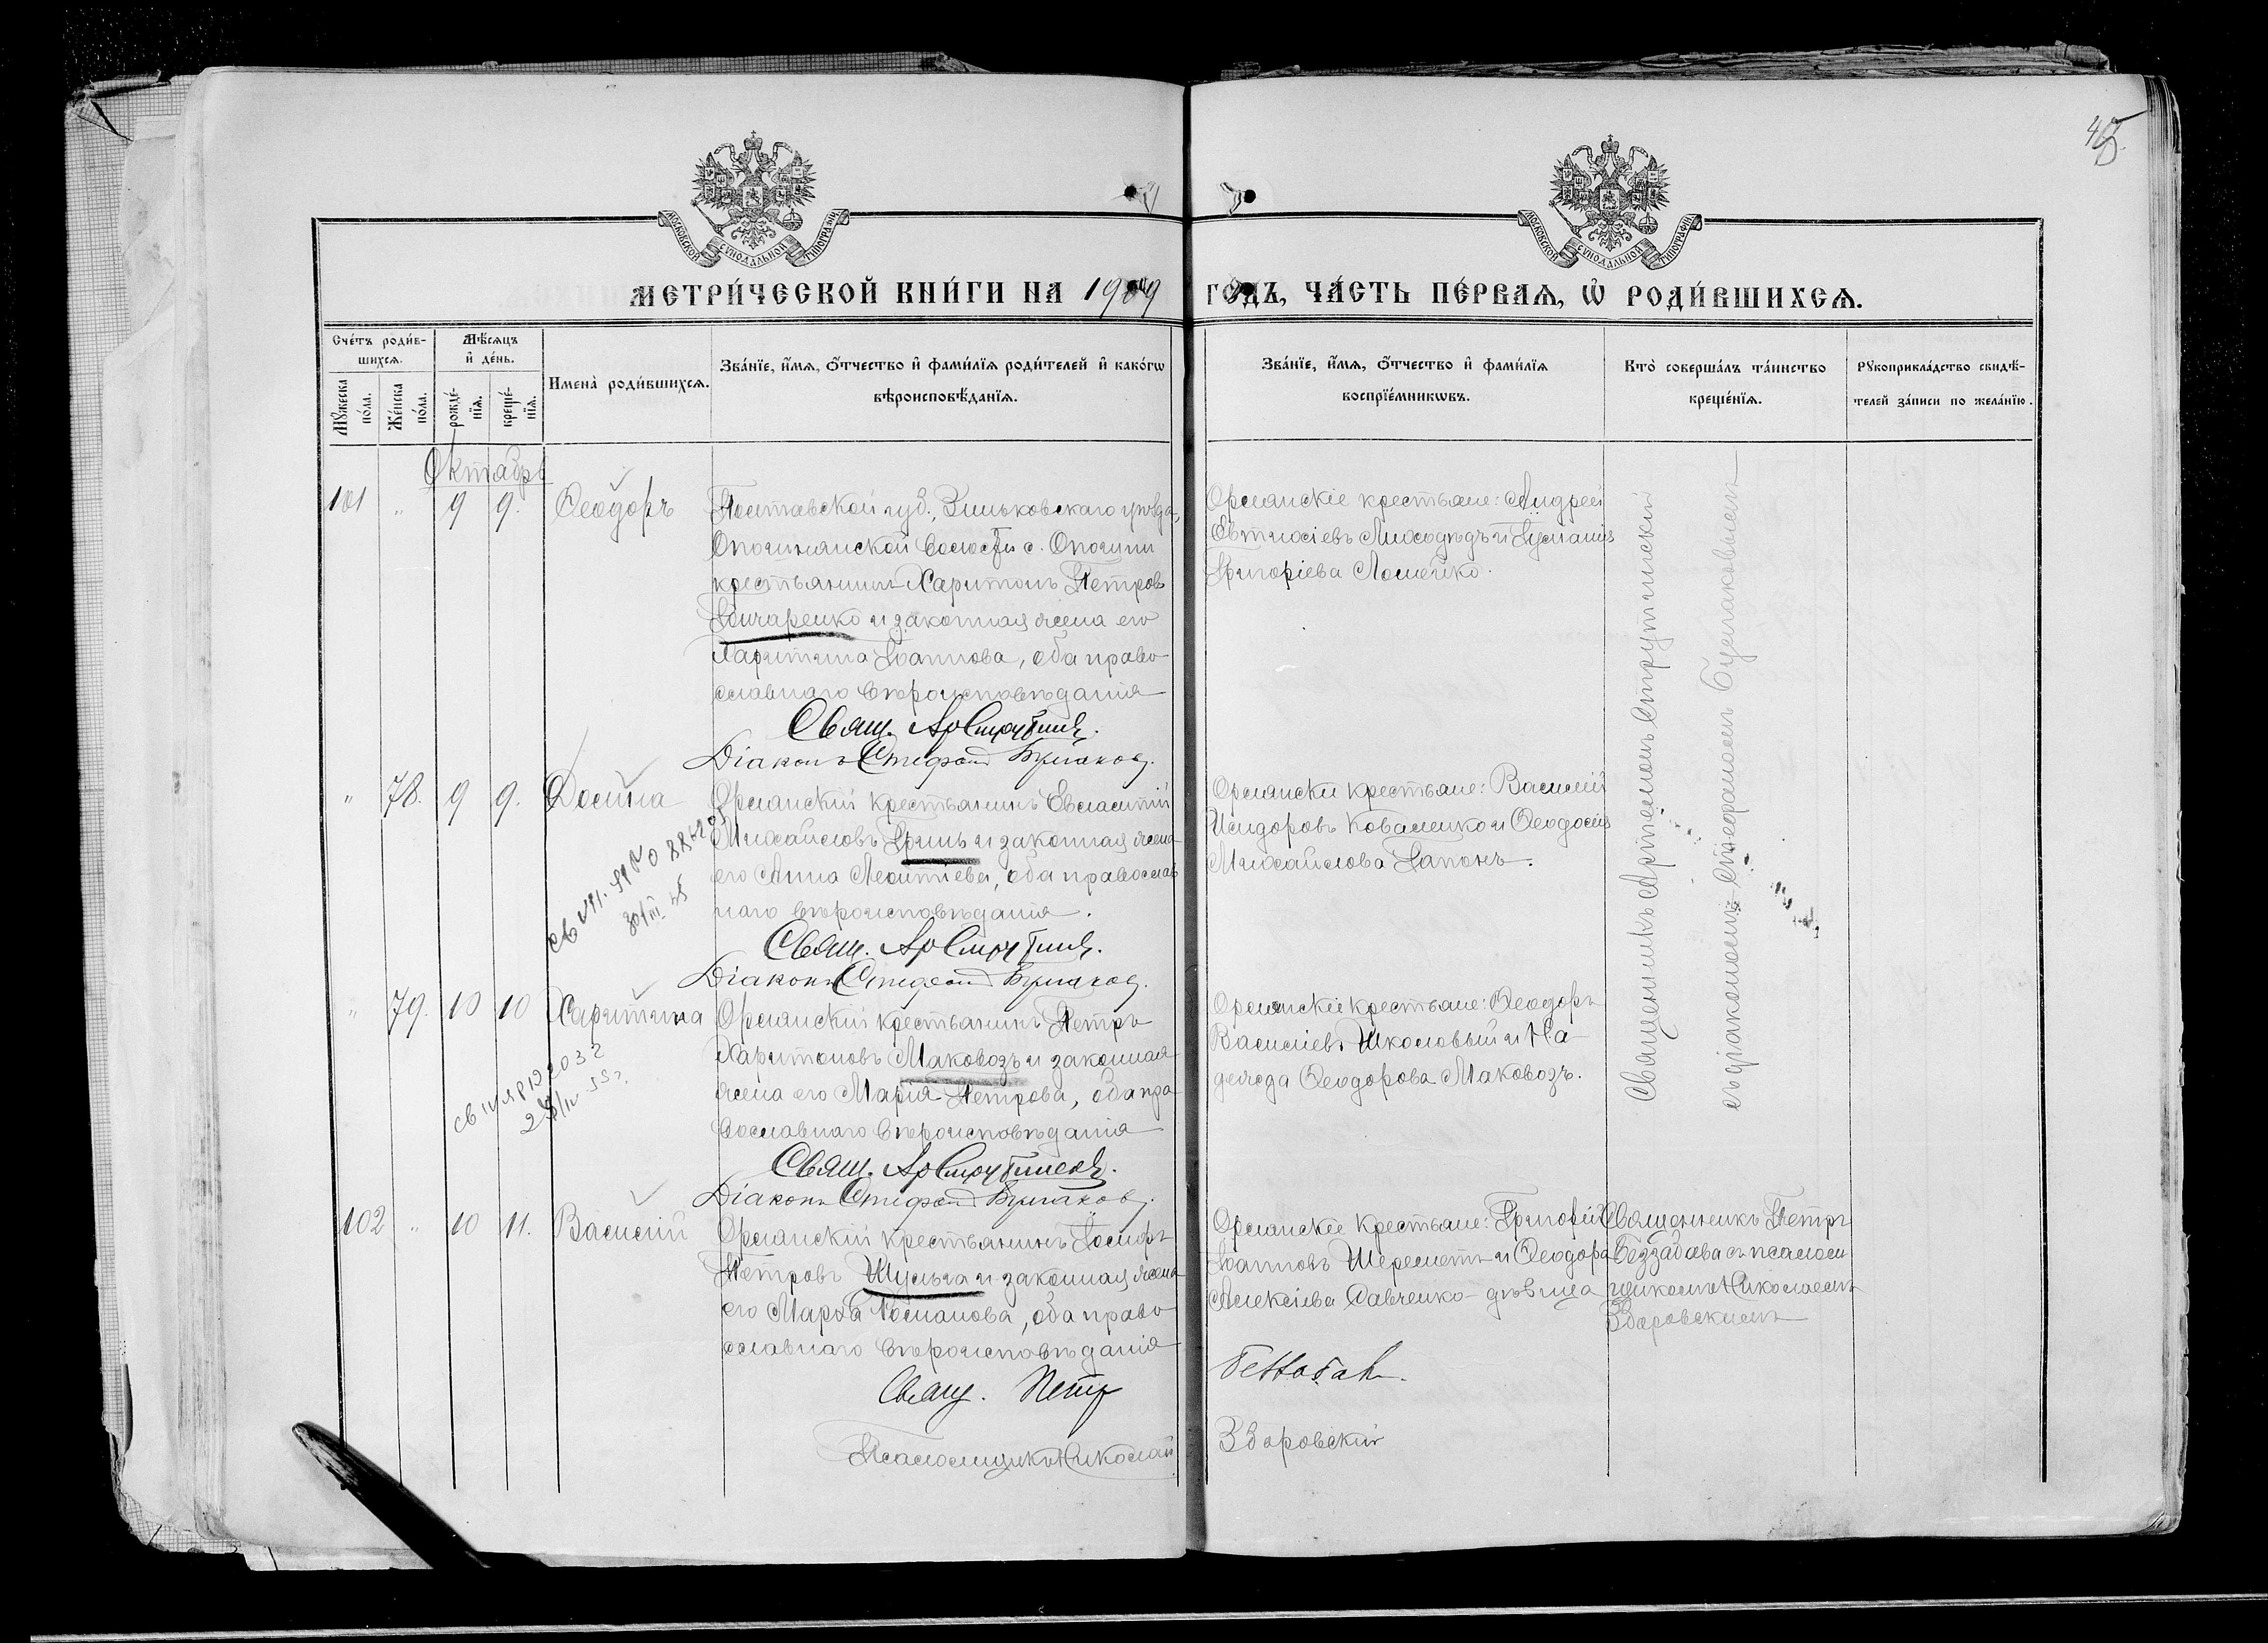 45
МОСКОВСКОЙ СѴНОДАЛЬНОЙ ТИПОГРАФІИ
МОСКОВСКОЙ СѴНОДАЛЬНОЙ ТИПОГРАФІИ
МЕТРИ́ЧЕСКОЙ КНИ́ГИ НА 1909 ГОДЪ, ЧА́СТЬ ПЕ́РВАѦ, Ѽ РОДИ́ВШИХСѦ.
Сче́тъ роди́в-
шихсѧ.
Мꙋ́жеска по́ла.
Же́нска по́ла.
Мѣ́сѧцъ
и҆ де́нь.
рожде́-нїѧ.
креще́-нїѧ.
Имена̀ роди́вшихсѧ.
Зва́нїе, и҆́мѧ, ѻ҆́тчество и҆ фами́лїѧ роди́телей и҆ како́гѡ
вѣроисповѣ́данїѧ.
Зва́нїе, и҆́мѧ, ѻ҆́тчество и҆ фами́лїѧ
воспрїе́мникѡвъ.
Кто̀ соверша́лъ та́инство
креще́нїѧ.
Рꙋкоприкла́дство свидѣ́-
телей за́писи по жела́нїю.
Октябрь
101 " 9 9. Ѳеодоръ
Полтавской губ., Зиньковскаго уѣзда,
Опошнянской волости с. Опошни
крестьянинъ Харитонъ Петровъ
Гончаренко и законная жена его
Харитина Іоаннова, оба право-
славнаго вѣроисповѣданія
Свящ. Ар Струтинск.
Діаконъ Стефанъ Буслаковъ.
Орлянскіе крестьяне: Андрей
Евтихіевъ Лиходѣдъ и Іуліанія
Григоріева Ломейко.
Священникъ Артемонъ Струтинскій
съ діакономъ Стефаномъ Буслаковымъ
" 78. 9 9. Домна
Орлянскій крестьянинъ Евлампій
Михайловъ Гринь и законная жена
его Анна Леонтіева, оба православ
наго вѣроисповѣданія.
Свящ. Ар Струтинск.
Діаконъ Стефанъ Буслаковъ.
Орлянскіе крестьяне: Василій
Исидоровъ Коваленко и Ѳеодосія
Михайлова Гапонъ.
" 79. 10 10 Харитина
Орлянскій крестьянинъ Петръ
Харитоновъ Маковозъ и законная
жена его Марія Петрова, оба пра
вославнаго вѣроисповѣданія
Свящ. Ар Струтинскій.
Діаконъ Стефанъ Буслаковъ.
Орлянскіе крестьяне: Ѳеодоръ
Василіевъ Школовый и На-
дежда Ѳеодорова Маковозъ.
102 " 10 11. Василій
Орлянскій крестьянинъ Іосифъ
Петровъ Шульга и законная жена
его Марѳа Романова, оба право
славнаго вѣроисповѣданія
Свящ. Петр
Псаломщикъ Николай
Орлянскіе крестьяне: Григорій
Іоанновъ Шереметъ и Ѳеодора
Алексіева Савченко-дѣвица
Здоровскій
Священникъ Петръ
съ псалом
щикомъ Николаемъ
Здоровскимъ